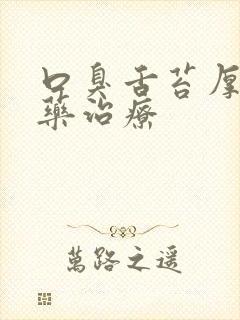 口臭舌苔厚
藥治療
萬路之遥